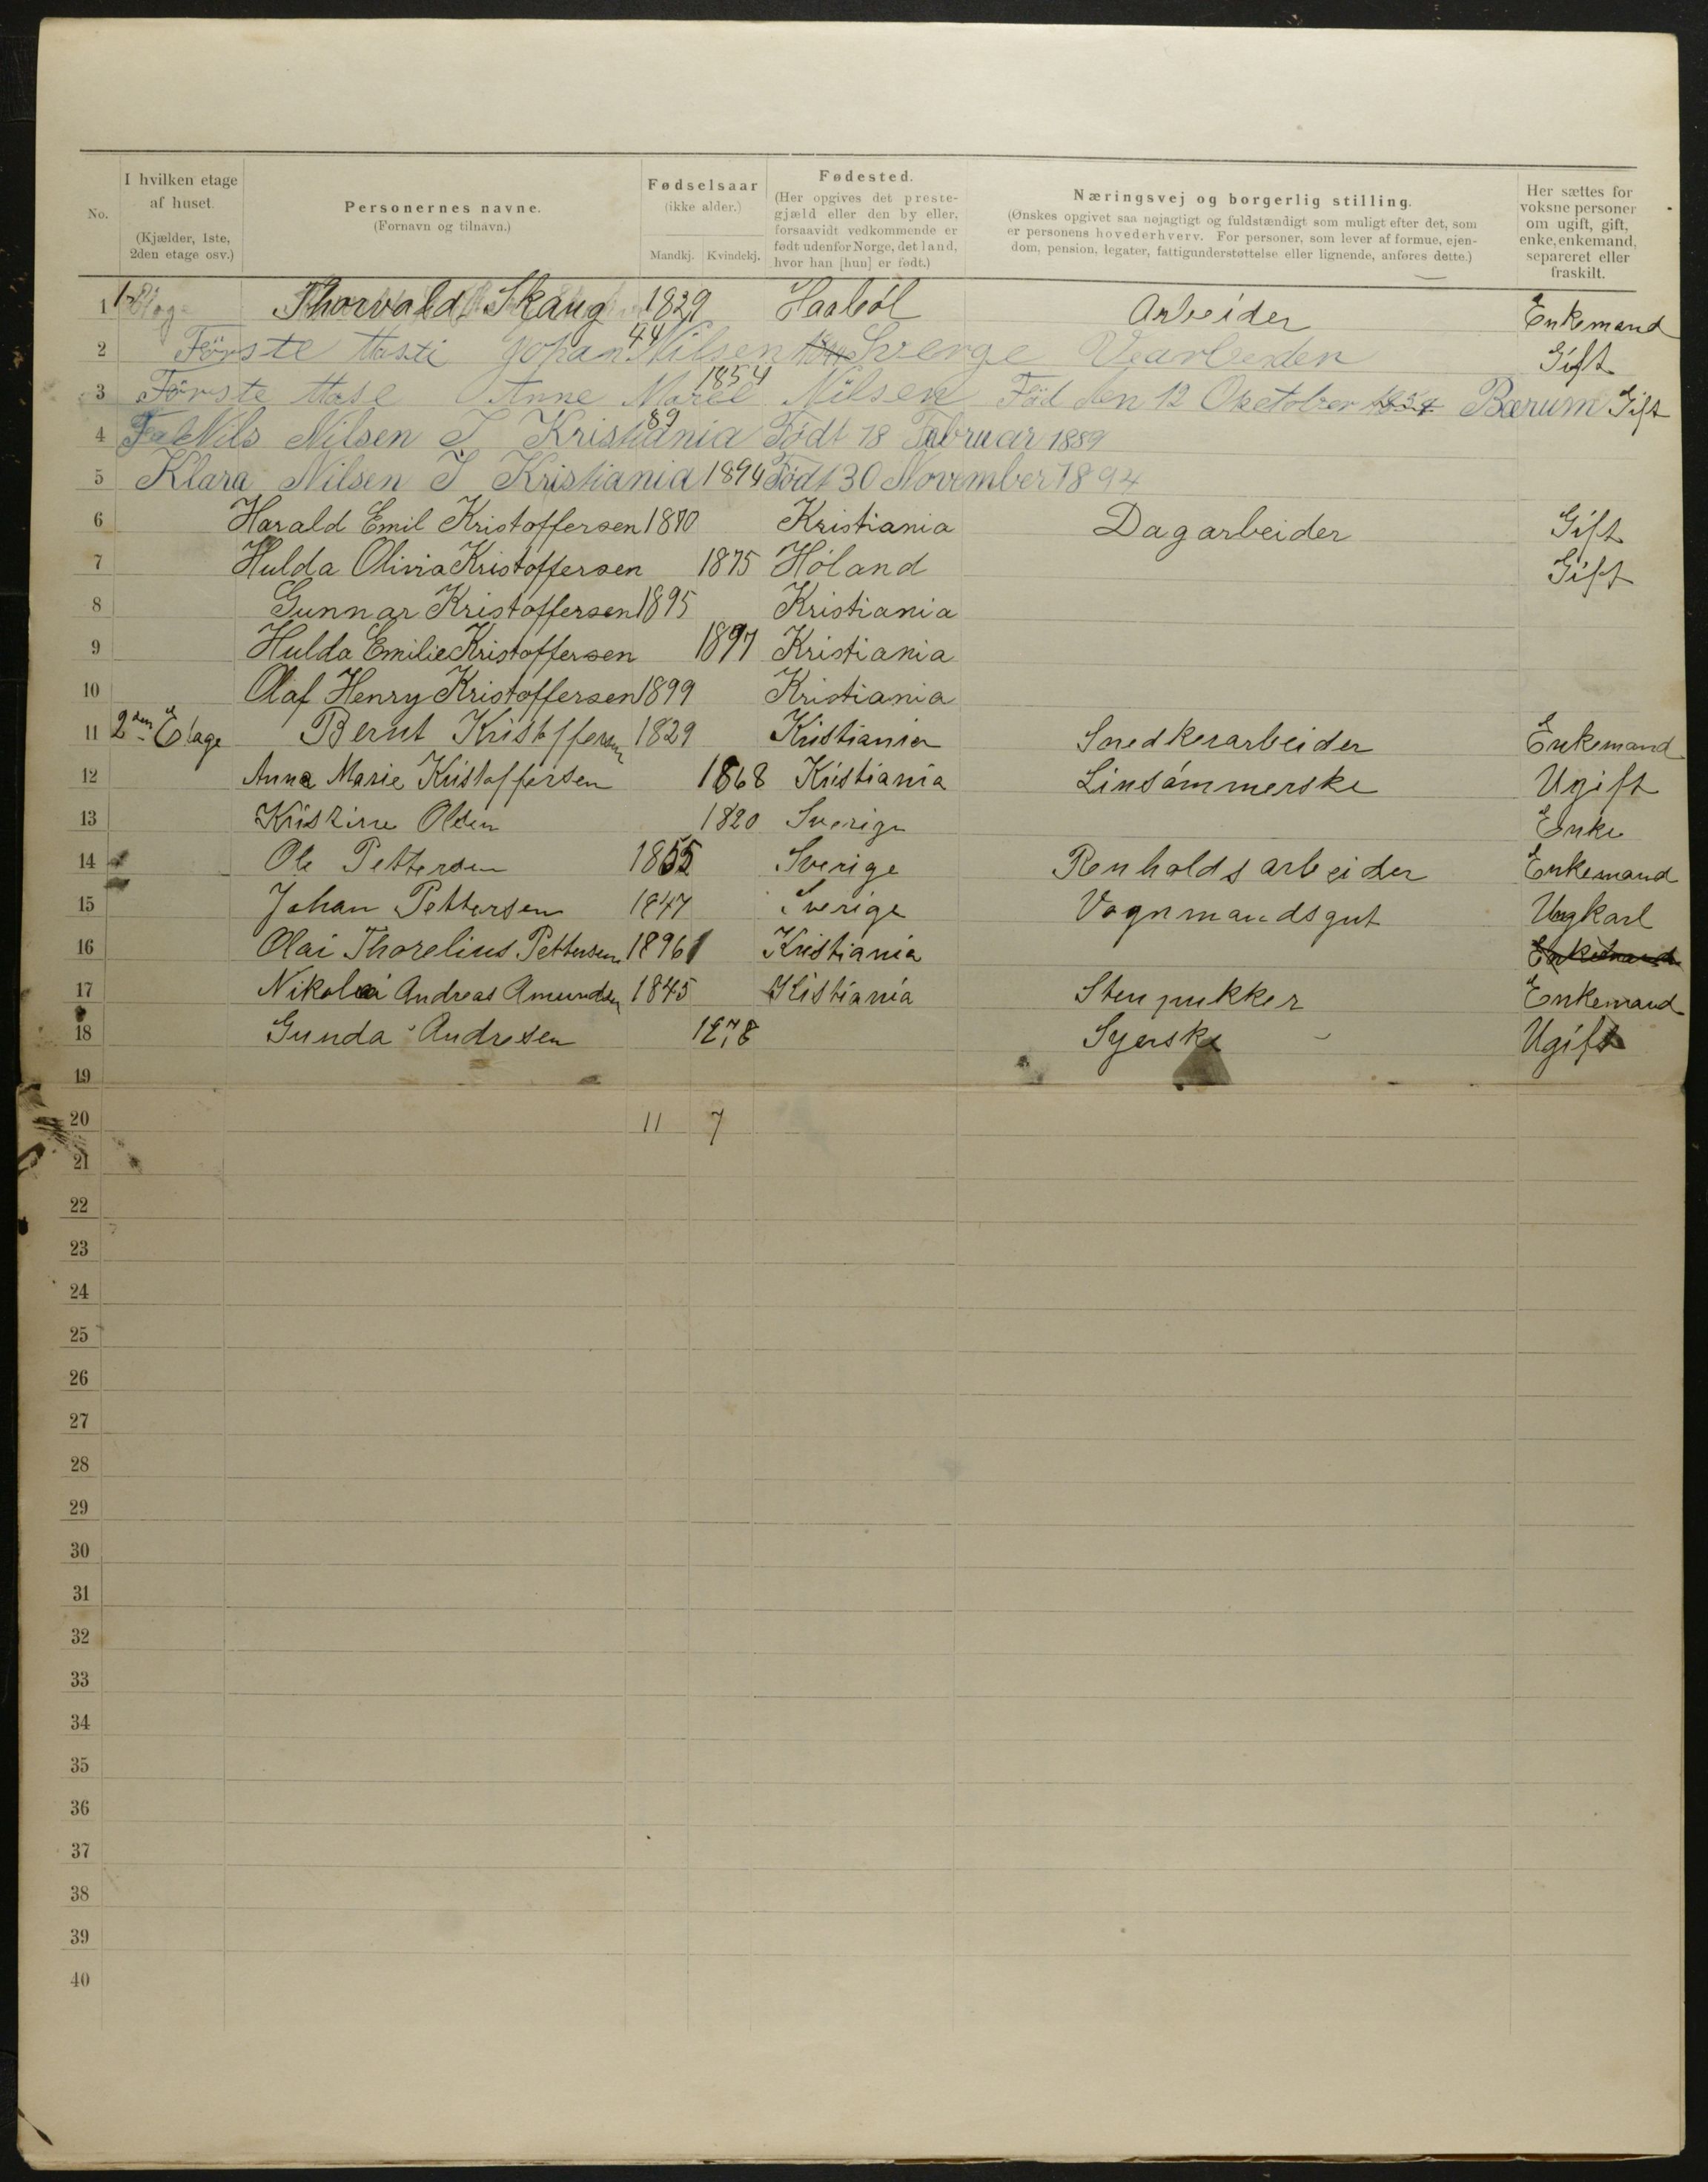 No.
I hvilken etage af huset. (Kjælder, 1ste, 2den etage osv.)
Personernes navne. (Fornavn og tilnavn.)
Fødselsaar (ikke alder.) Mandkj. Kvindekj.
Fødested. (Her opgives det prestegjæld eller den by eller, forsaavidt vedkommende er født udenfor Norge, det land, hvor han [hun] er født.)
Næringsvej og borgerlig stilling. (Ønskes opgivet saa nøjagtigt og fuldstændigt som muligt efter det, som er personens hovederhverv. For personer, som lever af formue, ejendom, pension, legater, fattigunderstøttelse eller lignende, anføres dette.)
Her sættes for voksne personer om ugift, gift, enke, enkemand, separeret eller fraskilt.
1 Thorvald Skaug 1829 Haabøl Arbeider Enkemand
2 Förste Johan Nilsen 44 Sverge Gift
3 Förste Anne Nilsen 1854 Föd den 12 Oketober 1854 Bærum Gift
4 Nils Nilsen I Kristiania 89 Födt 18 Februar 1889
5 Klara Nilsen I Kristiania 1894 Födt 30 November 1894
6 Harald Emil Kristoffersen 1870 Kristiania Dagarbeider Gift
7 Hulda Olivia Kristoffersen 1875 Höland Gift
8 Gunnar Kristoffersen 1895 Kristiania
9 Hulda Emilie Kristoffersen 1897 Kristiania
10 Olaf Henry Kristoffersen 1899 Kristiania
11 2den Etage Bernt Kristoffersen 1829 Kristiania Snedkerarbeider Enkemand
12 Anna Marie Kristoffersen 1868 Kristiania Linsømmerske Ugift
13 Kristine Olsen 1820 Sverige Enke
14 Ole Pettersen 1855 Sverige Renholdsarbeider Enkemand
15 Johan Pettersen 1847 Sverige Vognmandsgut Ungkarl
16 Olai Thorelius Pettersen 1896 Kristiania Enkemand
17 Nikolai Andreas Amundsen 1845 Kristiania Stenpukker Enkemand
18 Gunda Andresen 1878 Syerske Ugift
19
20 11 7
21
22
23
24
25
26
27
28
29
30
31
32
33
34
35
36
37
38
39
40